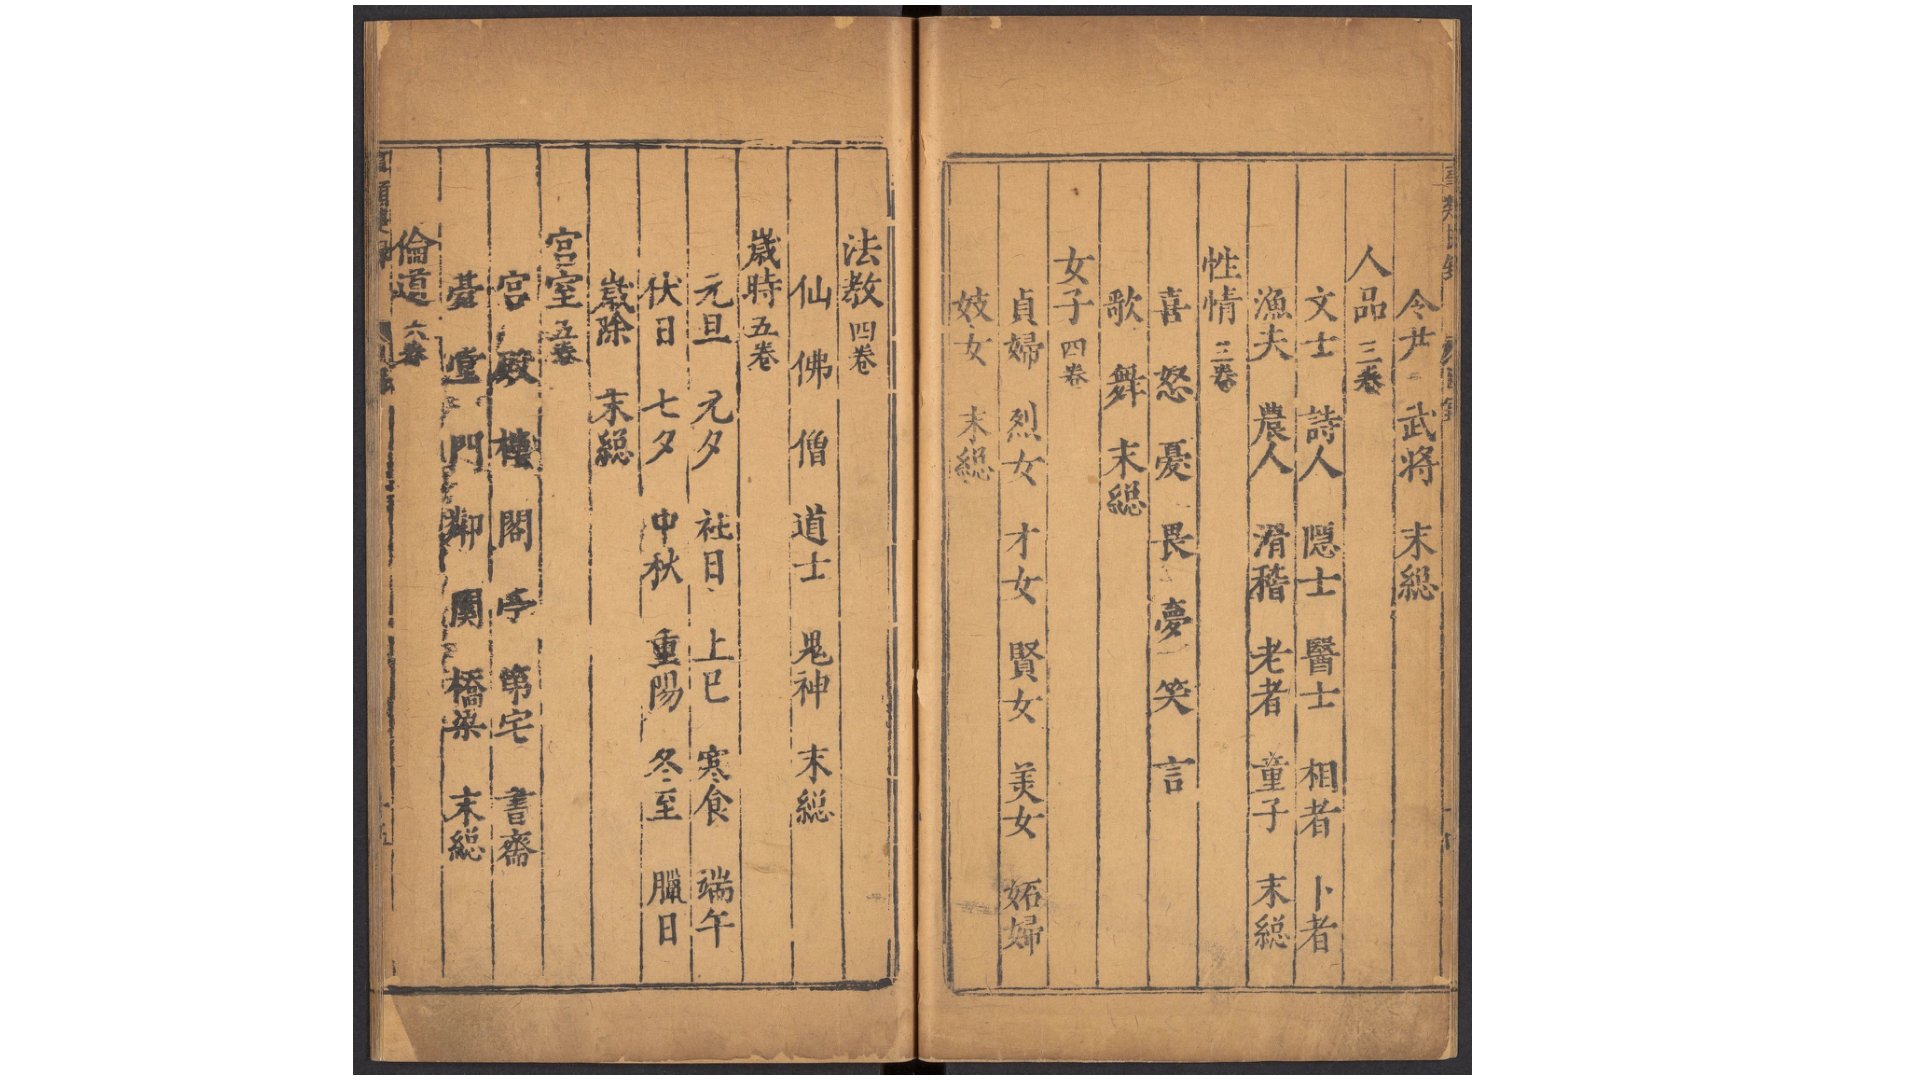 令尹 武将 末総
人品 三卷
文士 詩人 隠士 醫士 相者 卜者
漁夫 農人 滑稽 老者 童子 末総
性情 三卷
喜 怒 憂 畏 夢 笑 言
歌 舞 末総
女子 四卷
貞婦 烈女 才女 賢女 美女 妬婦
妓女 末総
法教 四卷
仙 佛 僧 道士 鬼神 末総
歳時 五卷
元旦 元夕 社日 上巳 寒食 端午
伏日 七夕 中秋 重陽 冬至 臘日
歳除 末総
宮室 五卷
宮 殿 樓 閣 亭 第宅 書齋
臺 堂 門 關 橋梁 末総
倫道 六卷